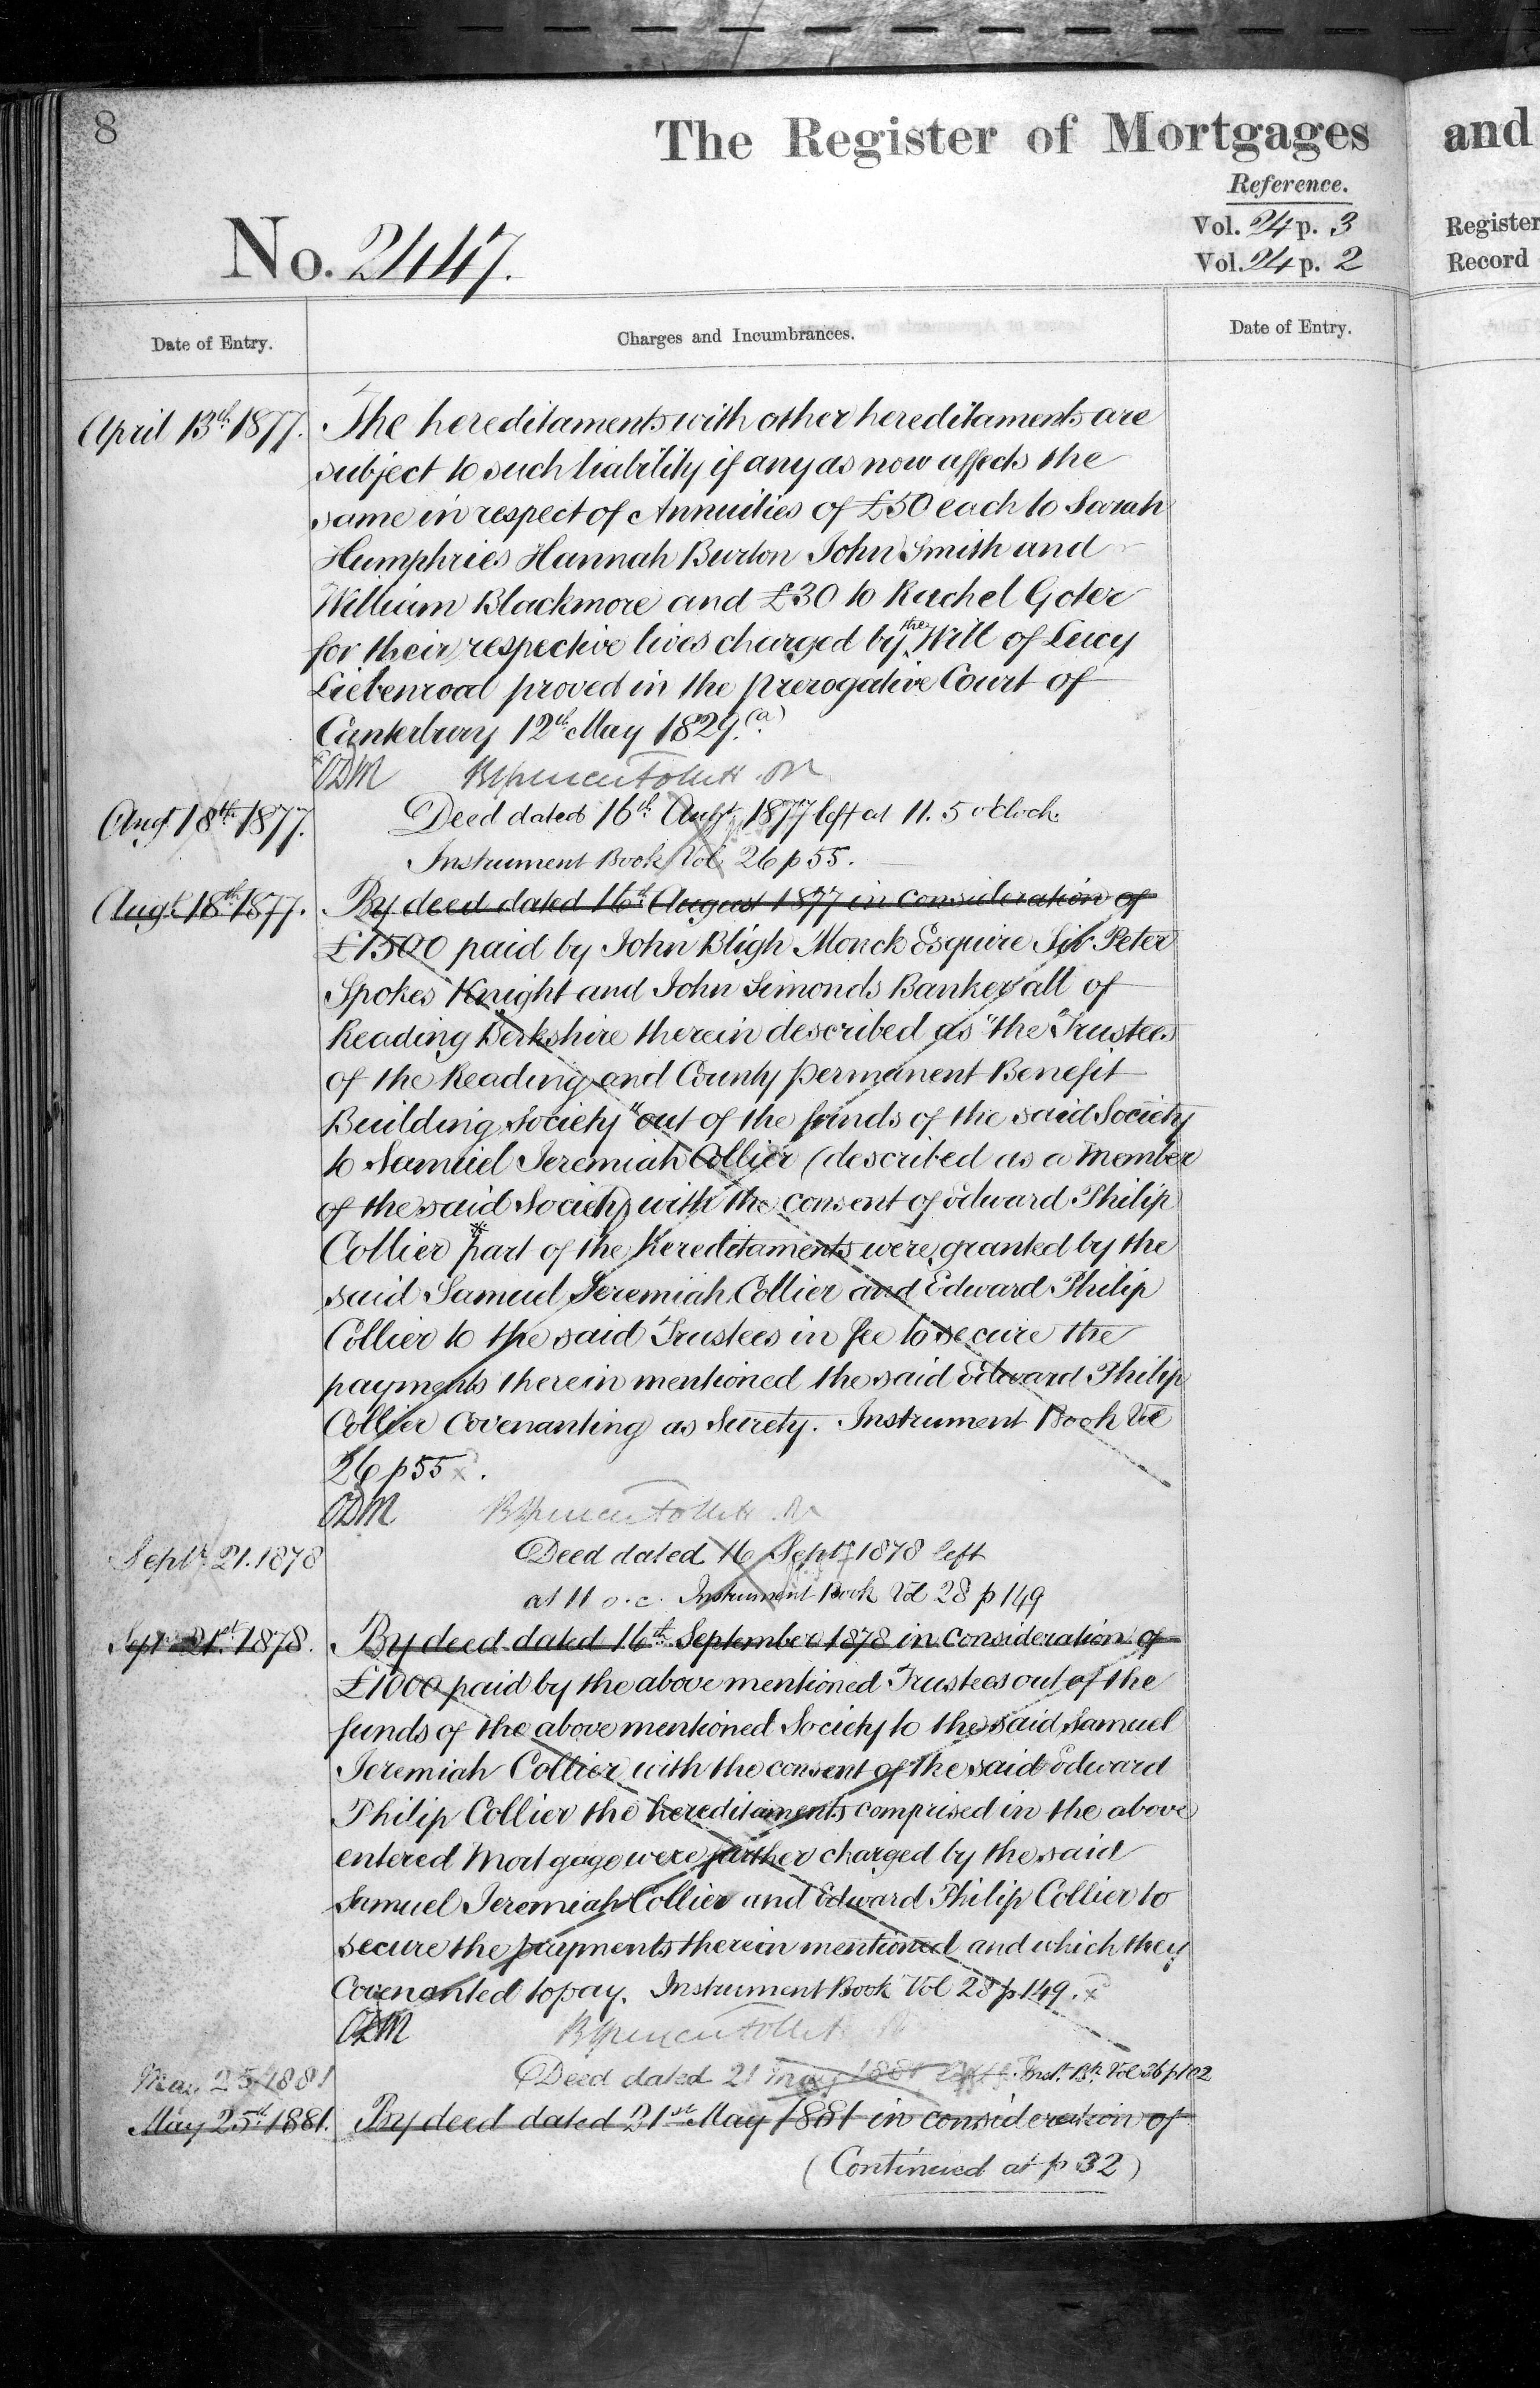 8
The Register of Mortgages and
Reference.
Vol. 24 p. 3 Register
Vol. 24 p. 2 Record
No. 2447.
Date of Entry. Charges and Incumbrances. Date of Entry.
April 13th 1877. The hereditaments with other hereditaments are
subject to such liability if any as now affects the
same in respect of Annuities of £50 each to Sarah
Humphries Hannah Burton John Smith and
William Blackmore and £30 to Rachel Goter
for their respective lives charged by the Will of Lucy
Liebenrood proved in the Prerogative Court of
Canterbury 12th May 1829.(a)
BSpencer Follett
Augt 18th 1877. Deed dated 16th Augt 1877 left at 11.5 o'clock.
Instrument Book Vol. 26 p 55.
Augt 18th 1877. By deed dated 16th August 1877 in consideration of
£1500 paid by John Bligh Monck Esquire Sir Peter
Spokes Knight and John Simonds Banker all of
Reading Berkshire therein described as "the Trustees
of the Reading and County Permanent Benefit
Building Society" out of the funds of the said Society
to Samuel Jeremiah Collier (described as a Member
of the said Society) with the consent of Edward Philip
Collier * part of the hereditaments were granted by the
said Samuel Jeremiah Collier and Edward Philip
Collier to the said Trustees in fee to secure the
payments therein mentioned the said Edward Philip
Collier Covenanting as Surety. Instrument Book Vol
26 p 55 x.
BSpencer Follett
Septr 21. 1878 Deed dated 16 Septr 1878 left
at 11 o.c. Instrument Book Vol 28 p 149
Sepr 21st 1878. By deed dated 16th September 1878 in consideration of
£1000 paid by the above mentioned Trustees out of the
funds of the above mentioned Society to the said Samuel
Jeremiah Collier with the consent of the said Edward
Philip Collier the hereditaments comprised in the above
entered Mortgage were further charged by the said
Samuel Jeremiah Collier and Edward Philip Collier to
secure the payments therein mentioned and which they
Covenanted to pay. Instrument Book Vol 28 p 149. x
BSpencer Follett
May 25 1881 Deed dated 21 May 1881 Inst. Bk. Vol 36 p 102
May 25th 1881. By deed dated 21st May 1881 in consideration of
(Continued at p 32)